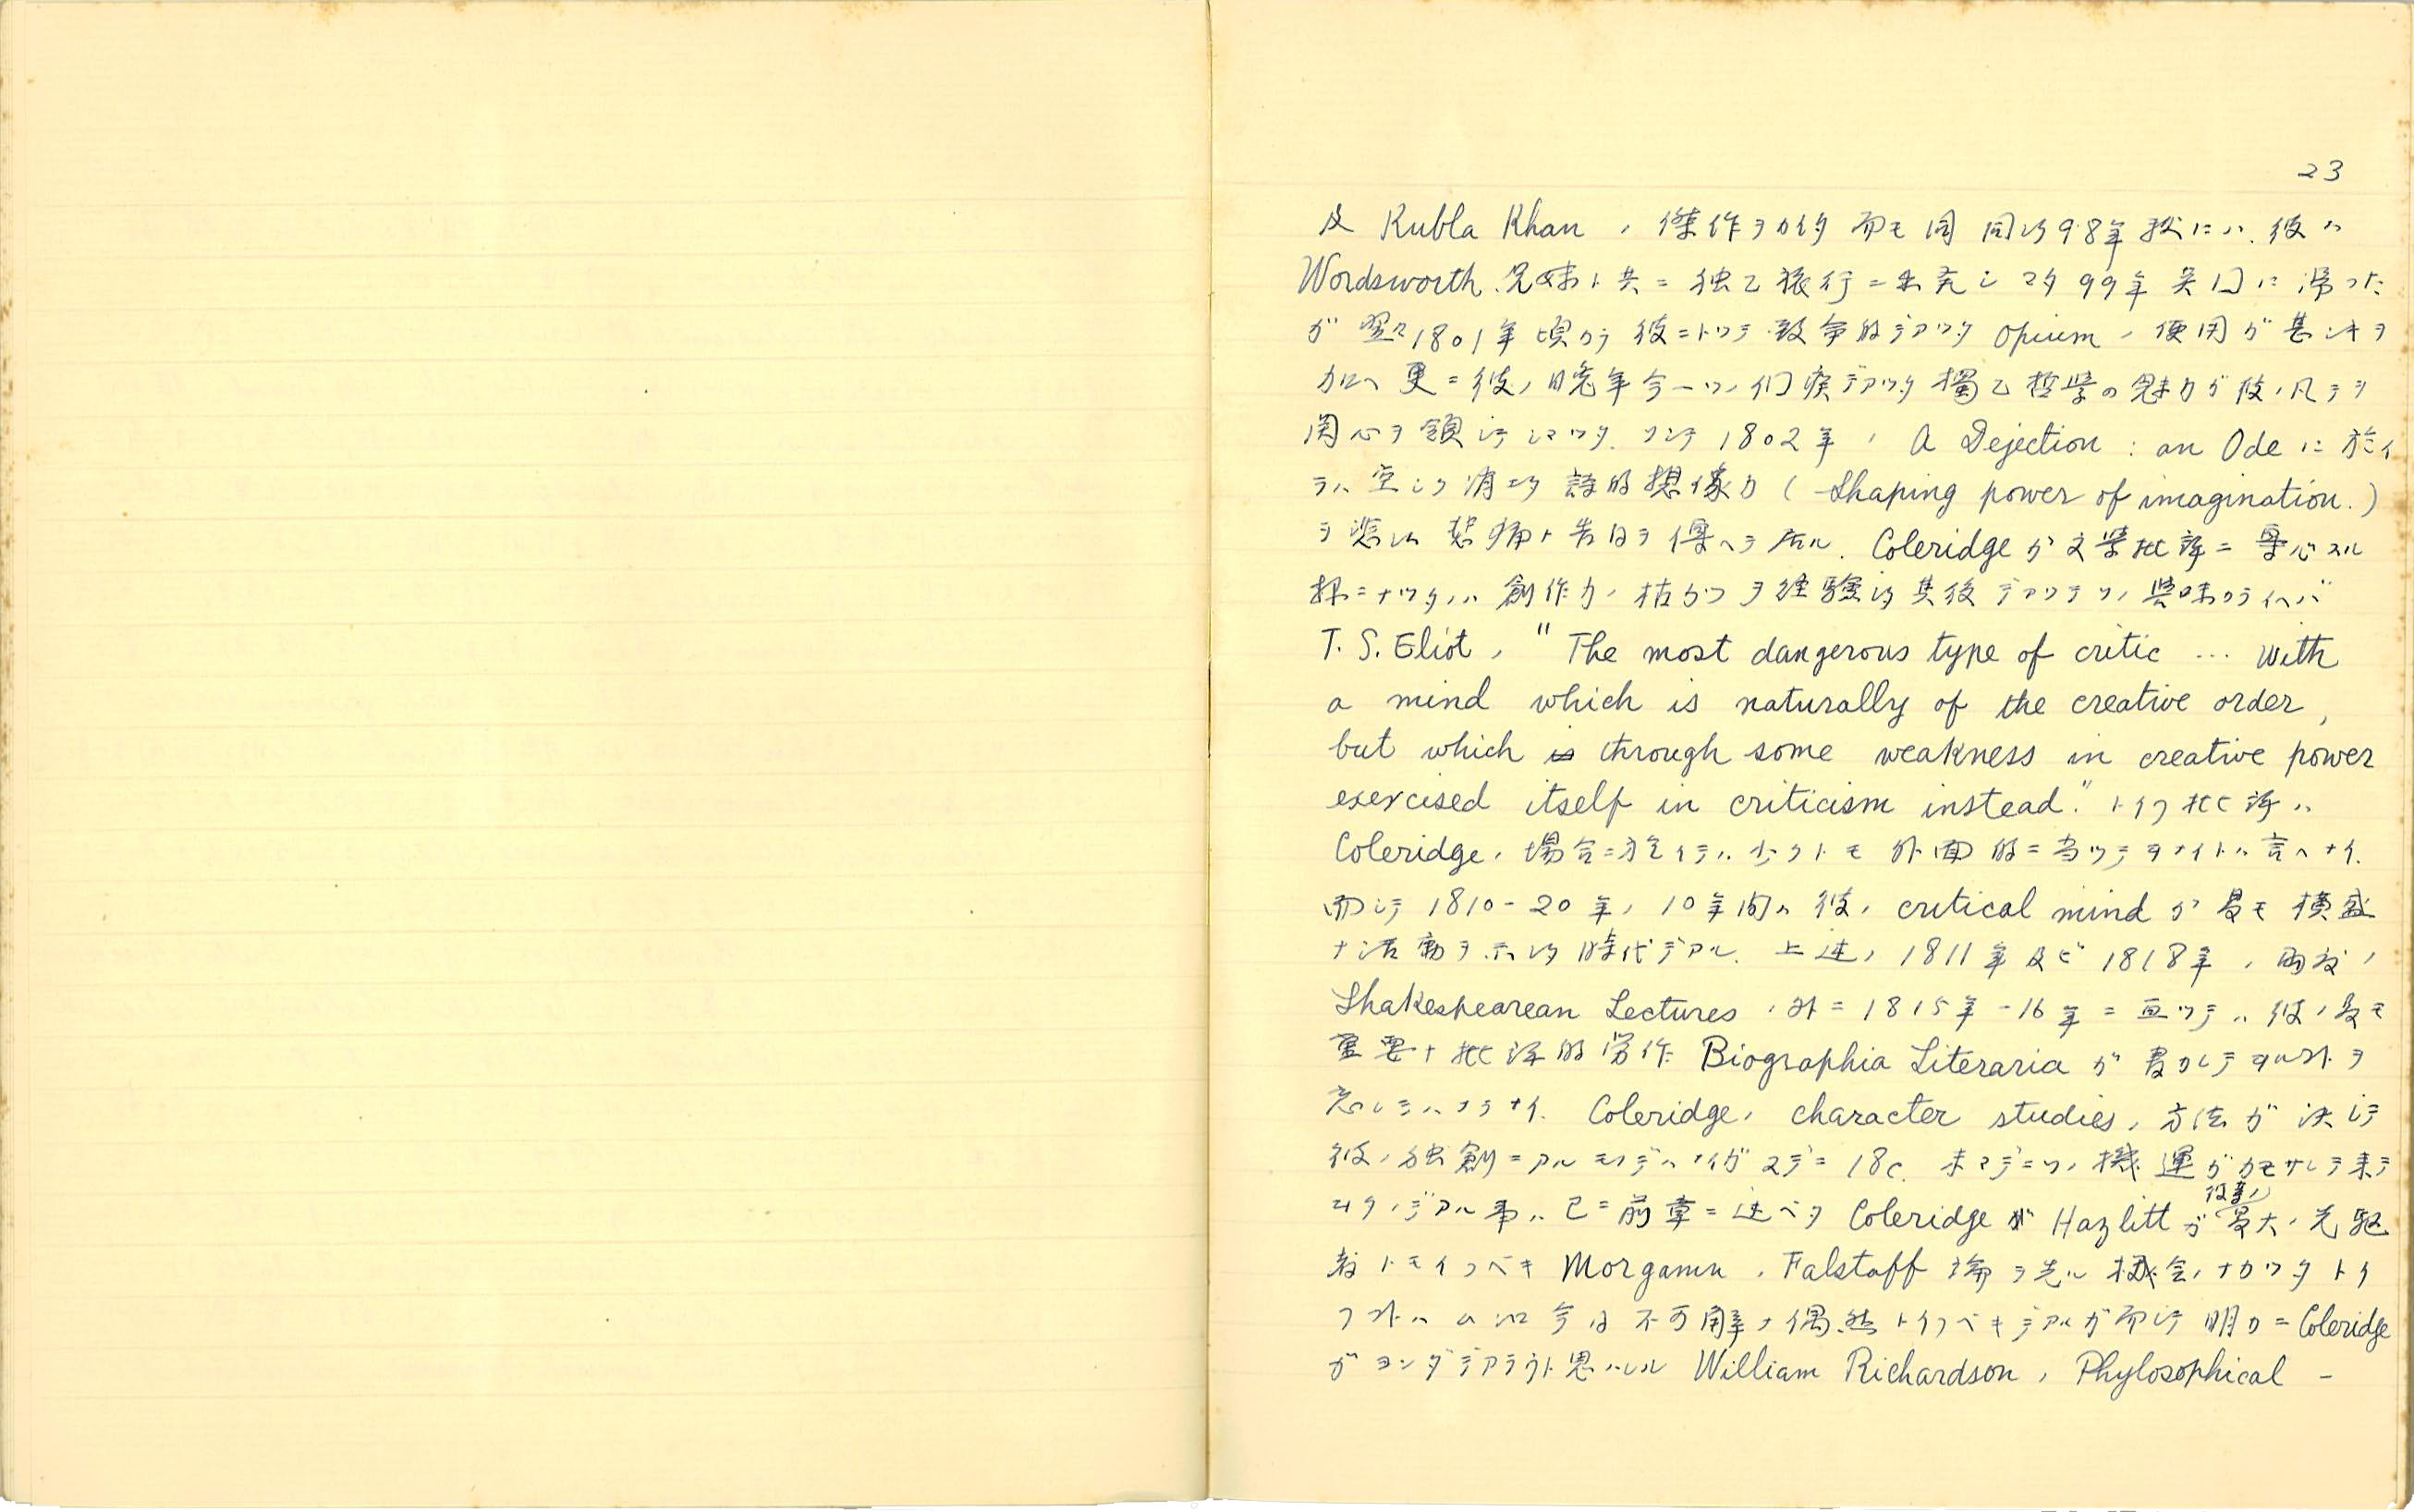 23
及 Kubla Khan ノ 傑作ヲカイタ 而モ同 同ジ98年秋にハ 彼ハ
Wordsworth 兄妹ト共ニ 独乙旅行ニ出発シマタ 99年 英国に帰った
が 翌々1801年頃カラ 彼ニトッテ 致命的デアッタ Opium ノ 使用ガ甚シキヲ
加へ 更ニ彼ノ晩年今一ツノ デアッタ 獨乙哲学の魅力ガ彼ノ凡テヲ
関心ヲ領シテシマッタ. ソシテ 1802年ノ A Dejection : an Ode に於イ
テハ 空シク消エタ 詩的想像力 ( Shaping power of imagination. )
ヲ悲シム 悲痛ナ告白ヲ傳ヘテ居ル. Coleridge ガ文学批評ニ専心スル
様ニナッタノハ 創作力ノ枯カツヲ経験シタ其後デアッテソノ意味カライヘバ
T. S. Eliot ノ " The most dangerous type of critic ... with
a mind which is naturally of the creative order,
but which is through some weakness in creative power
exercised itself in criticism instead." トイフ批評ハ
Coleridge ノ 場合ニ於イテハ 少クトモ 外面的ニ当ッテヰナイトハ言ヘナイ.
而シテ 1810-20年ノ 10年間ハ 彼ノ critical mind ガ最モ横盛
ナ活動ヲ示シタ時代デアル. 上述ノ 1811年及ビ 1818年ノ 両度ノ
Shakespearean Lectures ノ外ニ 1815年-16年ニ亘ッテハ 彼ノ最モ
重要ナ批評的労作 Biographia Literaria ガ書カレテヰル外ヲ
忘レテハナラナイ. Coleridge ノ character studies ノ方法ガ決シテ
彼ノ独創ニアルモノデハナイガ スデニ 18c. 末マデニソノ機運ガカモサレテ来テ
ヰタノデアル事ハ 已ニ前章ニ述ベタ Coleridge ガ Hazlitt ガ 彼等ノ 最大ノ先駆
者トモイフベキ Morgann ノ Falstaff 論ヲ 機会ノナカッタトイ
フ 今日不可解ナ偶然トイフベキデアルガ而シテ 明カニ Coleridge
ガヨンダデアラウト思ハレル William Richardson ノ Phylosophical -